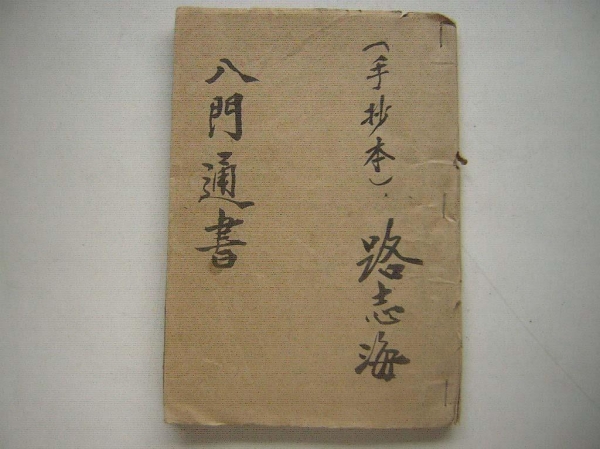 （手抄本）．路志海
八門通書